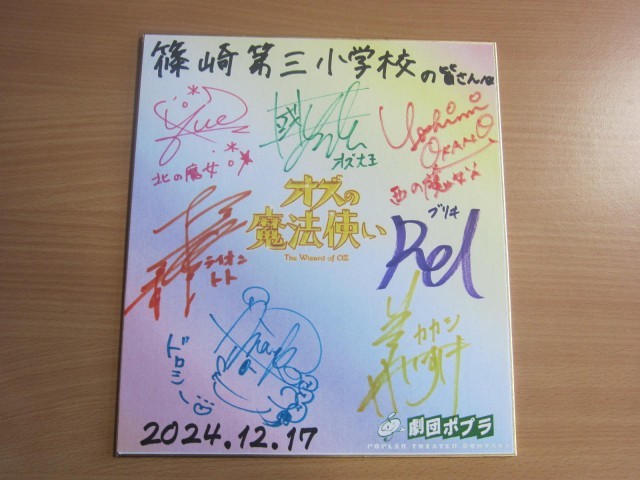 篠崎第三小学校の皆さんへ
Yue
北の魔女
オズ大王
Yoshimi
OKANO
西の魔女
オズの
魔法使い
The Wizard of OZ
ブリキ
Rel
ライオン
トト
カカシ
ドロシー
2024.12.17
劇団ポプラ
POPLAR THEATER COMPANY